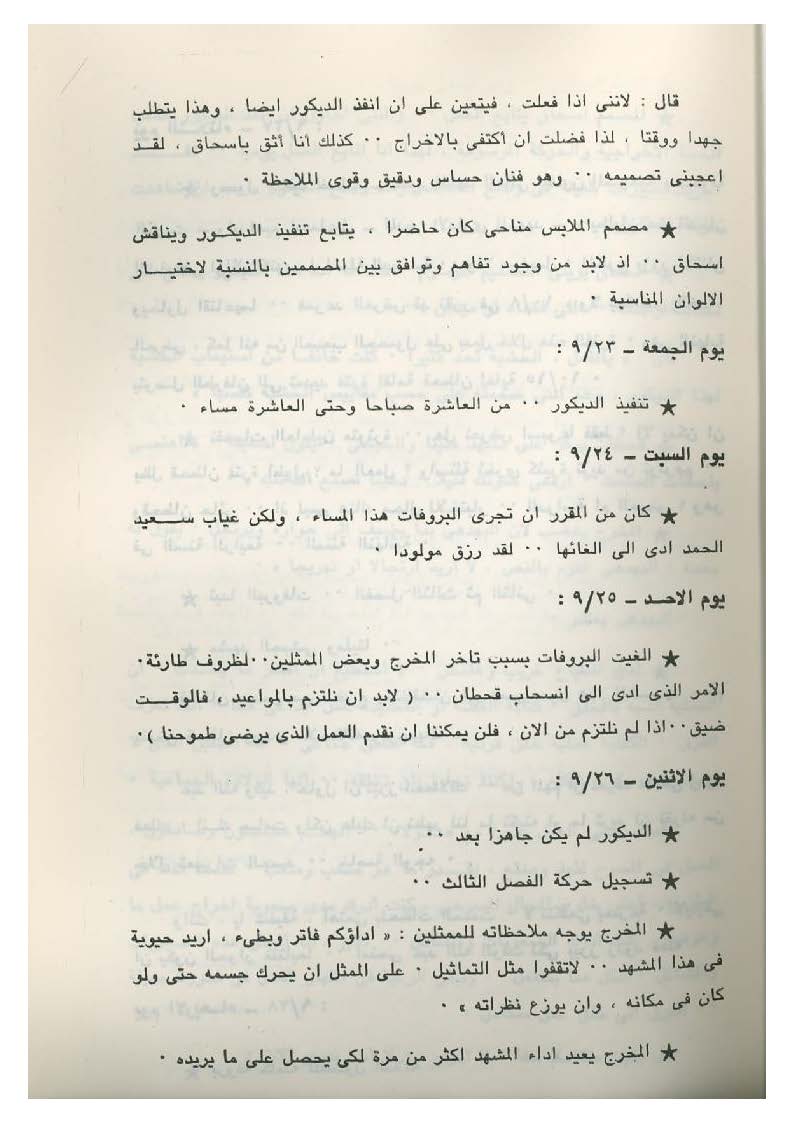 قال : لاننى اذا فعلت ، فيتعين على ان انفذ الديكور ايضا ، وهذا يتطلب
جهدا ووقتا ، لذا فضلت ان أكتفى بالاخراج ٠٠ كذلك أنا أثق باسحاق ، لقـد
اعجبنى تصميمه ٠٠ وهو فنان حساس ودقيق وقوى الملاحظة ٠
★ مصمم الملابس مناحى كان حاضرا ، يتابع تنفيذ الديكـور ويناقش
اسحاق ٠٠ اذ لابد من وجود تفاهم وتوافق بين المصممين بالنسبة لاختيـار
الالوان المناسبة ٠
يوم الجمعة ــ ٩/٢٣ :
★ تنفيذ الديكور ٠٠ من العاشرة صباحا وحتى العاشرة مساء ٠
يوم السبت ــ ٩/٢٤ :
★ كان من المقرر ان تجرى البروفات هذا المساء ، ولكن غياب سـعيد
الحمد ادى الى الغائها ٠٠ لقد رزق مولودا ٠
يوم الاحـد ــ ٩/٢٥ :
★ الغيت البروفات بسبب تاخر المخرج وبعض الممثلين٠٠لظروف طارئة٠
الامر الذى ادى الى انسحاب قحطان ٠٠ ( لابد ان نلتزم بالمواعيد ، فالوقـت
ضيق٠٠اذا لم نلتزم من الان ، فلن يمكننا ان نقدم العمل الذى يرضى طموحنا )٠
يوم الاثنين ــ ٩/٢٦ :
★ الديكور لم يكن جاهزا بعد ٠٠
★ تسجيل حركة الفصل الثالث ٠٠
★ المخرج يوجه ملاحظاته للممثلين : « اداؤكم فاتر وبطىء ، اريد حيوية
فى هذا المشهد ٠٠ لاتقفوا مثل التماثيل ٠ على الممثل ان يحرك جسمه حتى ولو
كان فى مكانه ، وان يوزع نظراته » ٠
★ المخرج يعيد اداء المشهد اكثر من مرة لكى يحصل على ما يريده ٠